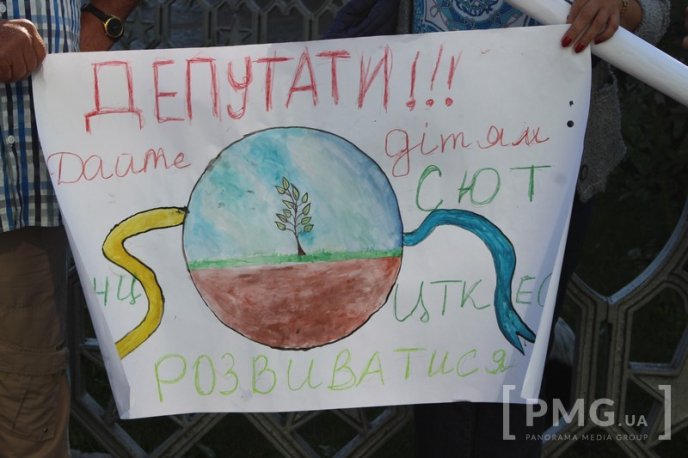 ДЕПУТАТИ!!!
Дайте дітям
СЮТ
НЦ ЦТКЕС
РОЗВИВАТИСЯ
[PMG.UA]
PANORAMA MEDIA GROUP